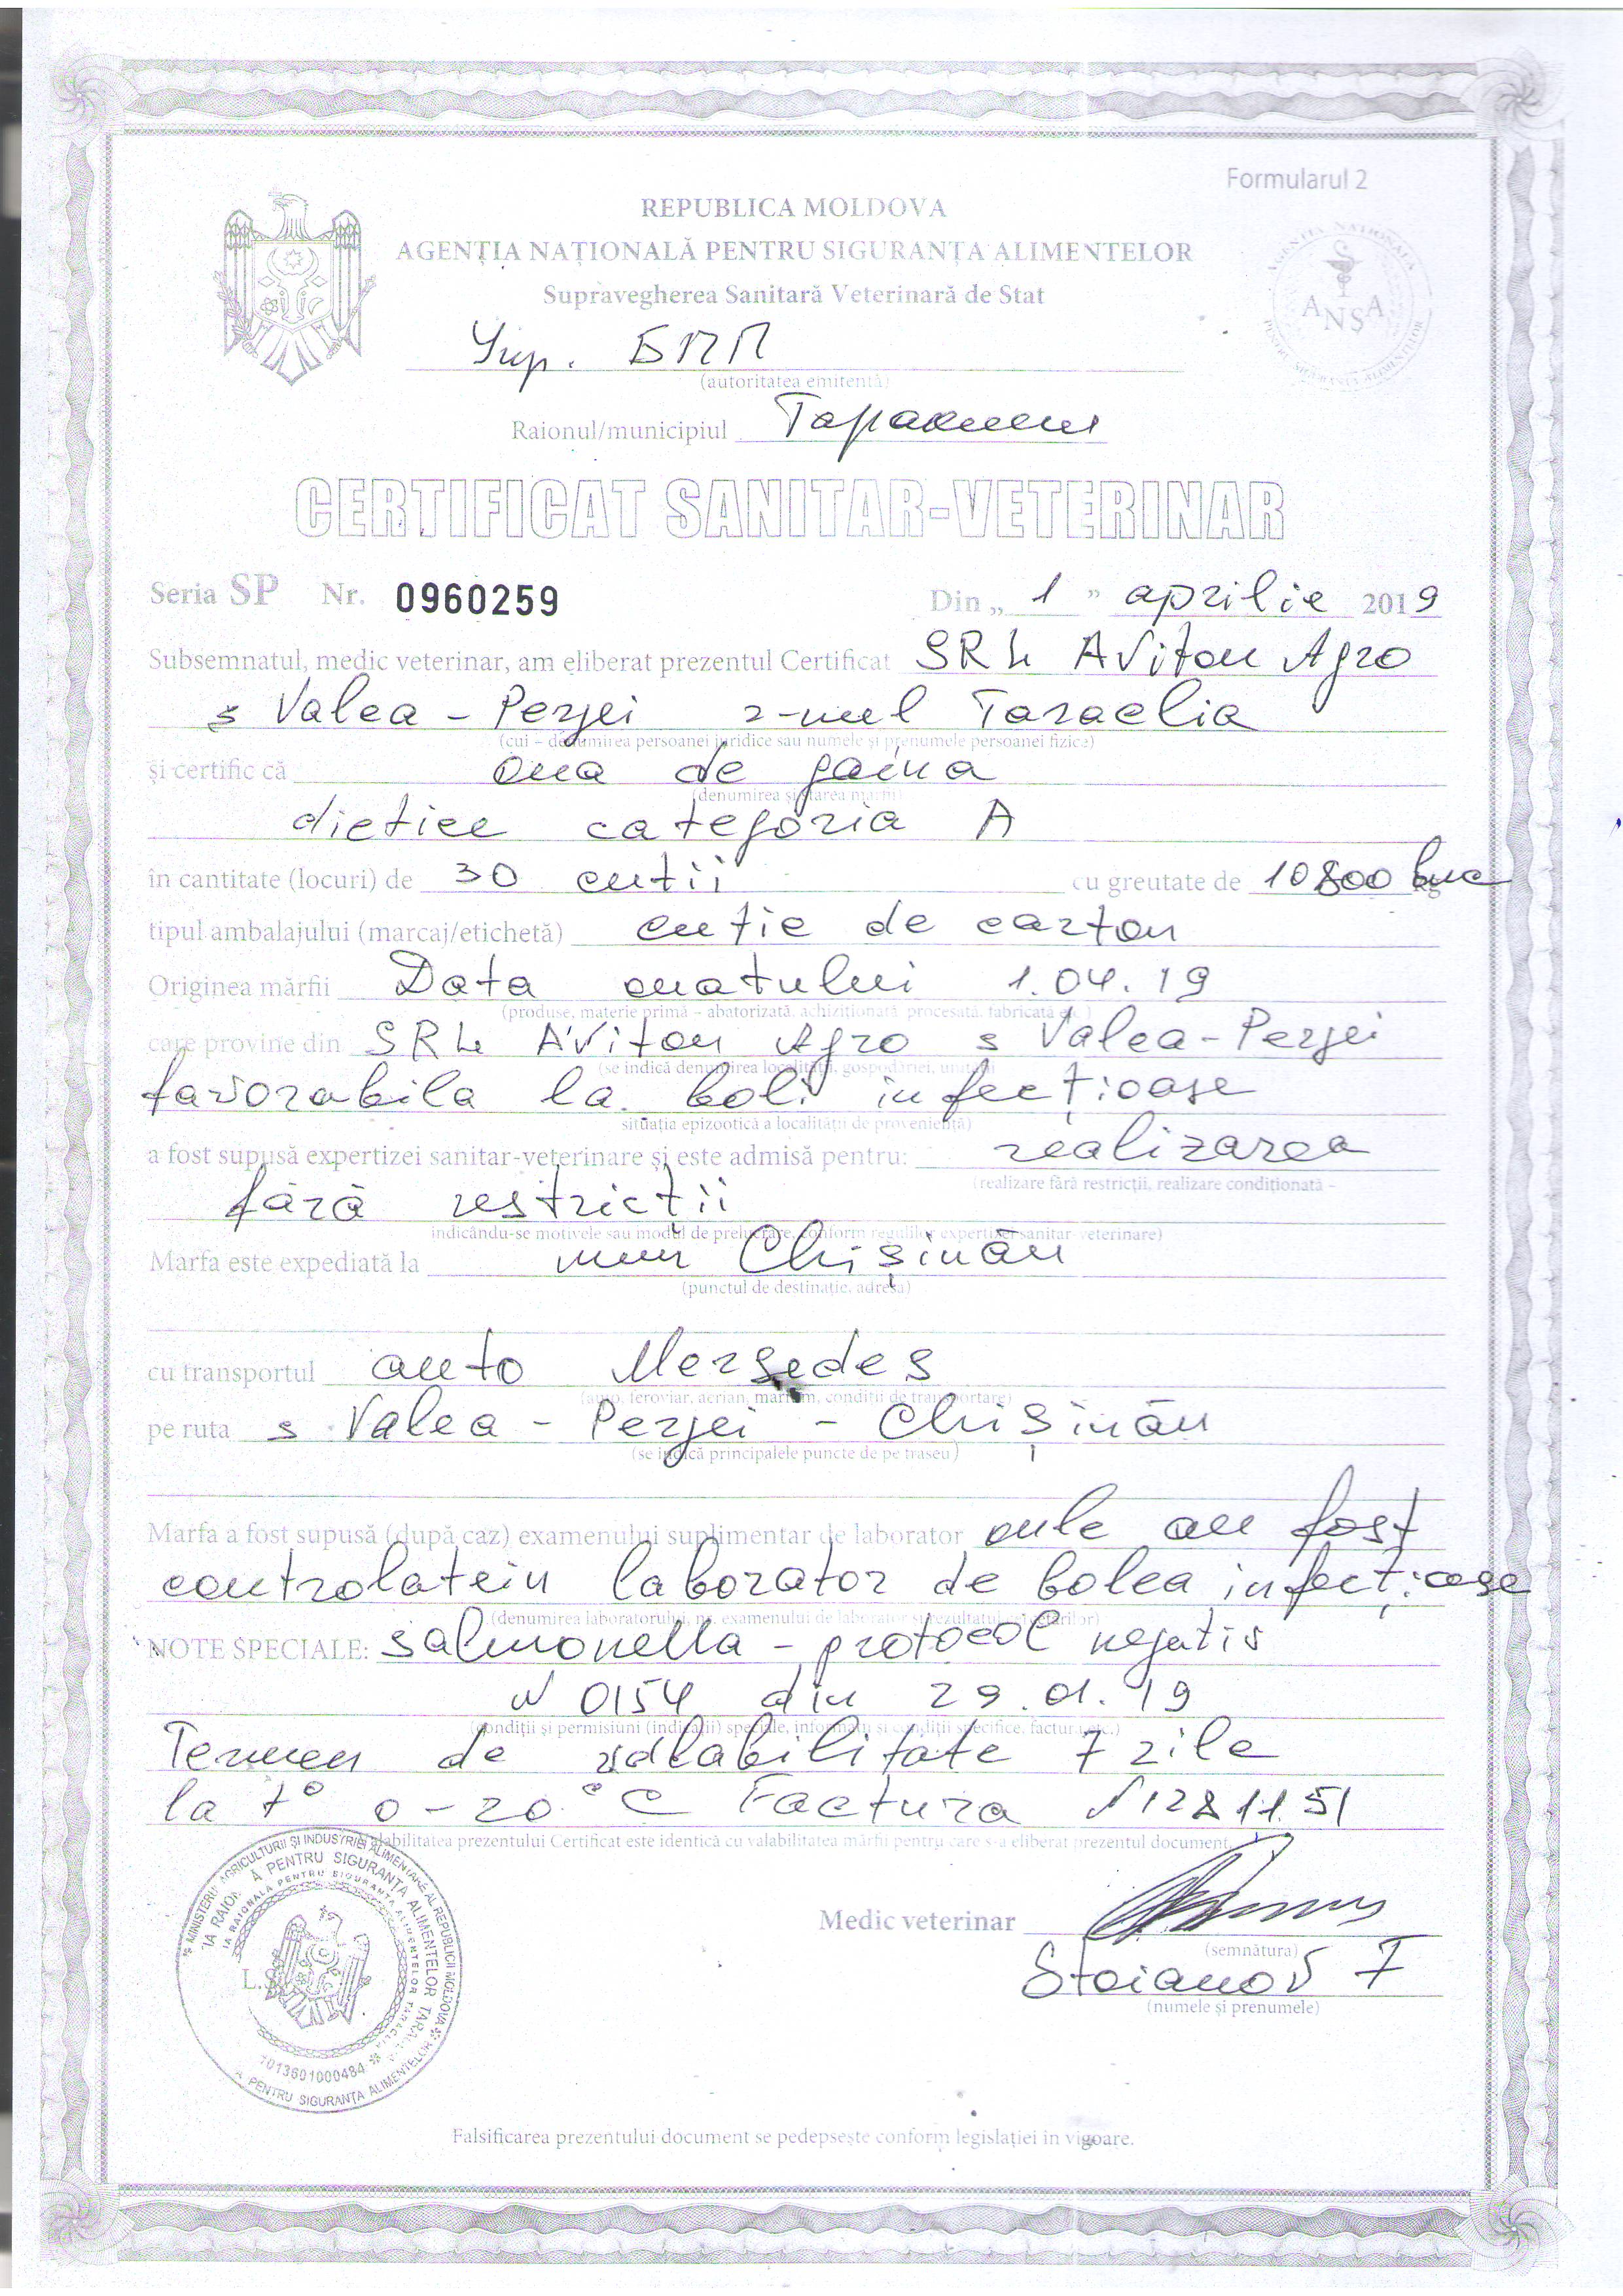 Formularul 2
REPUBLICA MOLDOVA
AGENȚIA NAȚIONALĂ PENTRU SIGURANȚA ALIMENTELOR
Supravegherea Sanitară Veterinară de Stat
ANSA
БПП
(autoritatea emitentă)
Raionul/municipiul
CERTIFICAT SANITAR-VETERINAR
Seria SP Nr. 0960259 Din „ 1 ” aprilie 2019
Subsemnatul, medic veterinar, am eliberat prezentul Certificat SRL Aviton Agro
s Valea - Perjei r-nul Taraclia
(cui – denumirea persoanei juridice sau numele și prenumele persoanei fizice)
și certific că oua de gaina
(denumirea și starea mărfii)
dietice categoria A
în cantitate (locuri) de 30 cutii cu greutate de 10800 buc kg
tipul ambalajului (marcaj/etichetă) cutie de carton
Originea mărfii Data ouatului 1.04.19
(produse, materie primă – abatorizată, achiziționată, procesată, fabricată etc.)
care provine din SRL Aviton Agro s Valea-Perjei
(se indică denumirea localității, gospodăriei, unității)
favorabila la boli infecțioase
situația epizootică a localității de proveniență)
a fost supusă expertizei sanitar-veterinare și este admisă pentru: realizarea
(realizare fără restricții, realizare condiționată –
fără restricții
indicându-se motivele sau modul de prelucrare, conform regulilor expertizei sanitar-veterinare)
Marfa este expediată la mun Chișinău
(punctul de destinație, adresa)
cu transportul auto Mersedes
(auto, feroviar, aerian, maritim, condiții de transportare)
pe ruta s Valea - Perjei - Chișinău
(se indică principalele puncte de pe traseu)
Marfa a fost supusă (după caz) examenului suplimentar de laborator oule au fost
controlatein laborator de bolea infecțioase
(denumirea laboratorului, nr. examenului de laborator și rezultatul cercetărilor)
NOTE SPECIALE: salmonella - protocol negativ
N 0154 din 29.01.19
(condiții și permisiuni (indicații) speciale, informații și condiții specifice, factura etc.)
Termen de valabilitate 7 zile
la t° 0-20°C Factura N 1281151
Valabilitatea prezentului Certificat este identică cu valabilitatea mărfii pentru care s-a eliberat prezentul document.
Medic veterinar
(semnătura)
L.Ș.
Stoianov F
(numele și prenumele)
1013601000484
PENTRU SIGURANȚA ALIMENTELOR
Falsificarea prezentului document se pedepsește conform legislației în vigoare.